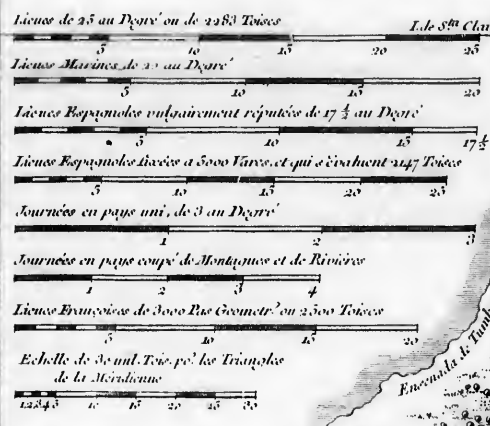 Lieues de 25 au Degré ou de 2283 Toises
I. de Sta Clar
5 10 15 20 25
Lieues Marines de 20 au Degré
5 10 15 20
Lieues Espagnoles vulgairement réputées de 17 ½ au Degré
5 10 15 17 ½
Lieues Espagnoles fixées a 5000 Vares, et qui s'évaluent 2147 Toises
5 10 15 20 25
Journées en pays uni, de 3 au Degré
1 2 3
Journées en pays coupé de Montagnes et de Rivières
1 2 3 4
Lieues Françoises de 3000 Pas Geometr.s ou 2500 Toises
5 10 15 20
Echelle de 30 mil. Tois. pr. les Triangles
de la Méridienne
1 2 3 4 5 10 15 20 25 30
Ensenada de Tumb